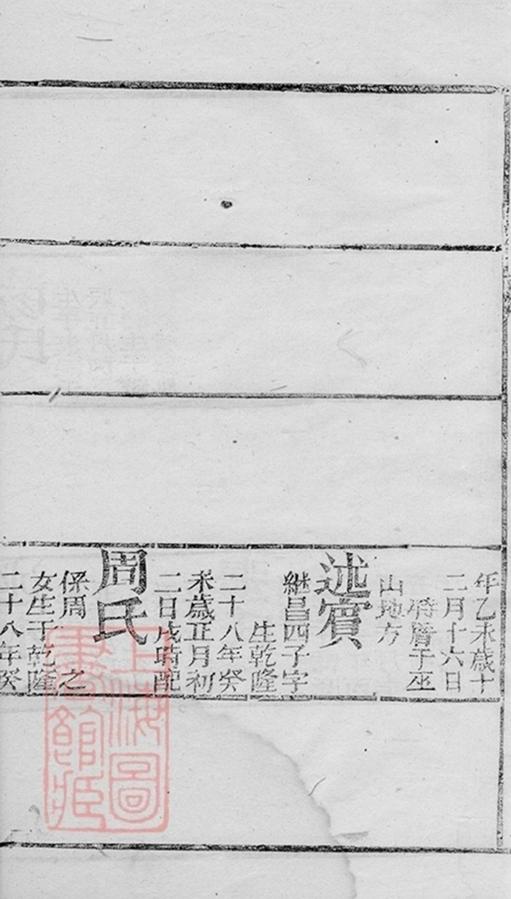 年乙未歲十
二月十六日
時
山地方
述賓
継昌四子字
生乾隆
二十八年癸
未歲正月初
二日戌時配
周氏
係周 之
女生于乾隆
二十八年癸
上海圖
書館藏